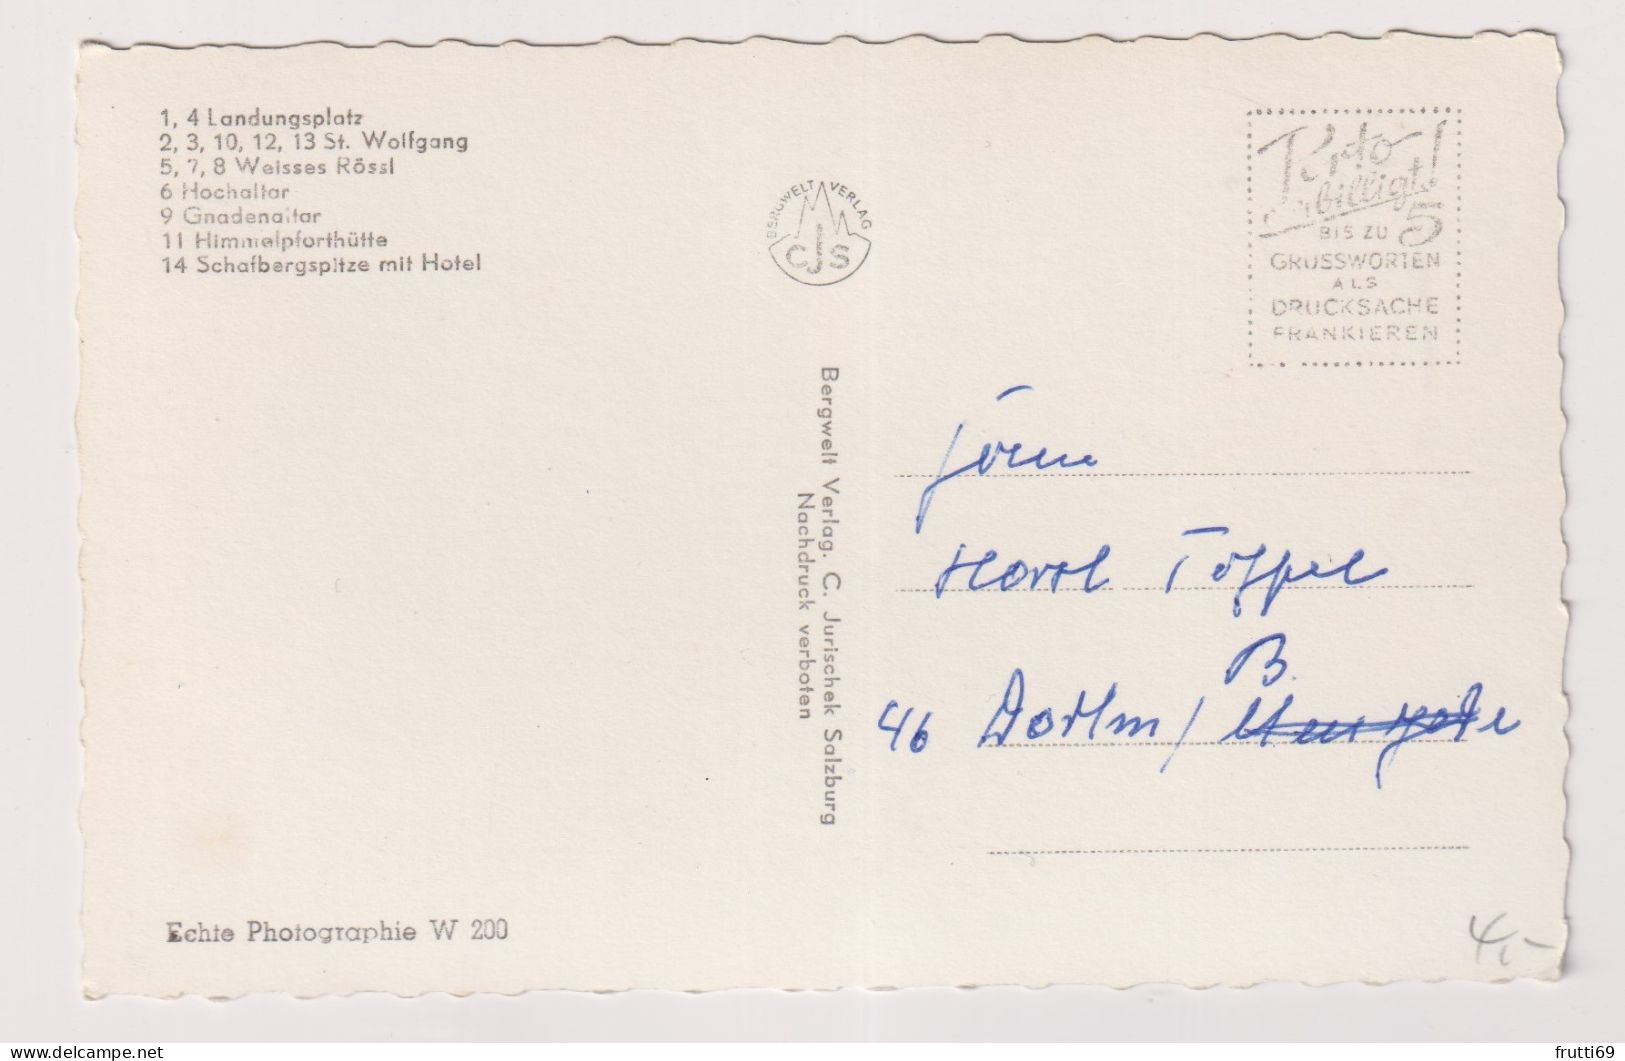 1, 4 Landungsplatz
2, 3, 10, 12, 13 St. Wolfgang
5, 7, 8 Weisses Rössl
6 Hochaltar
9 Gnadenaltar
11 Himmelpforthütte
14 Schafbergspitze mit Hotel
BERGWELT VERLAG
CJS
Porto
billigt!
BIS ZU 5
GRUSSWORTEN
ALS
DRUCKSACHE
FRANKIEREN
Bergwelt Verlag. C. Jurischek Salzburg
Nachdruck verboten
Horst Töffel
B.
46 Dortm /
Echte Photographie W 200
4,-
delcampe.net
frutti69